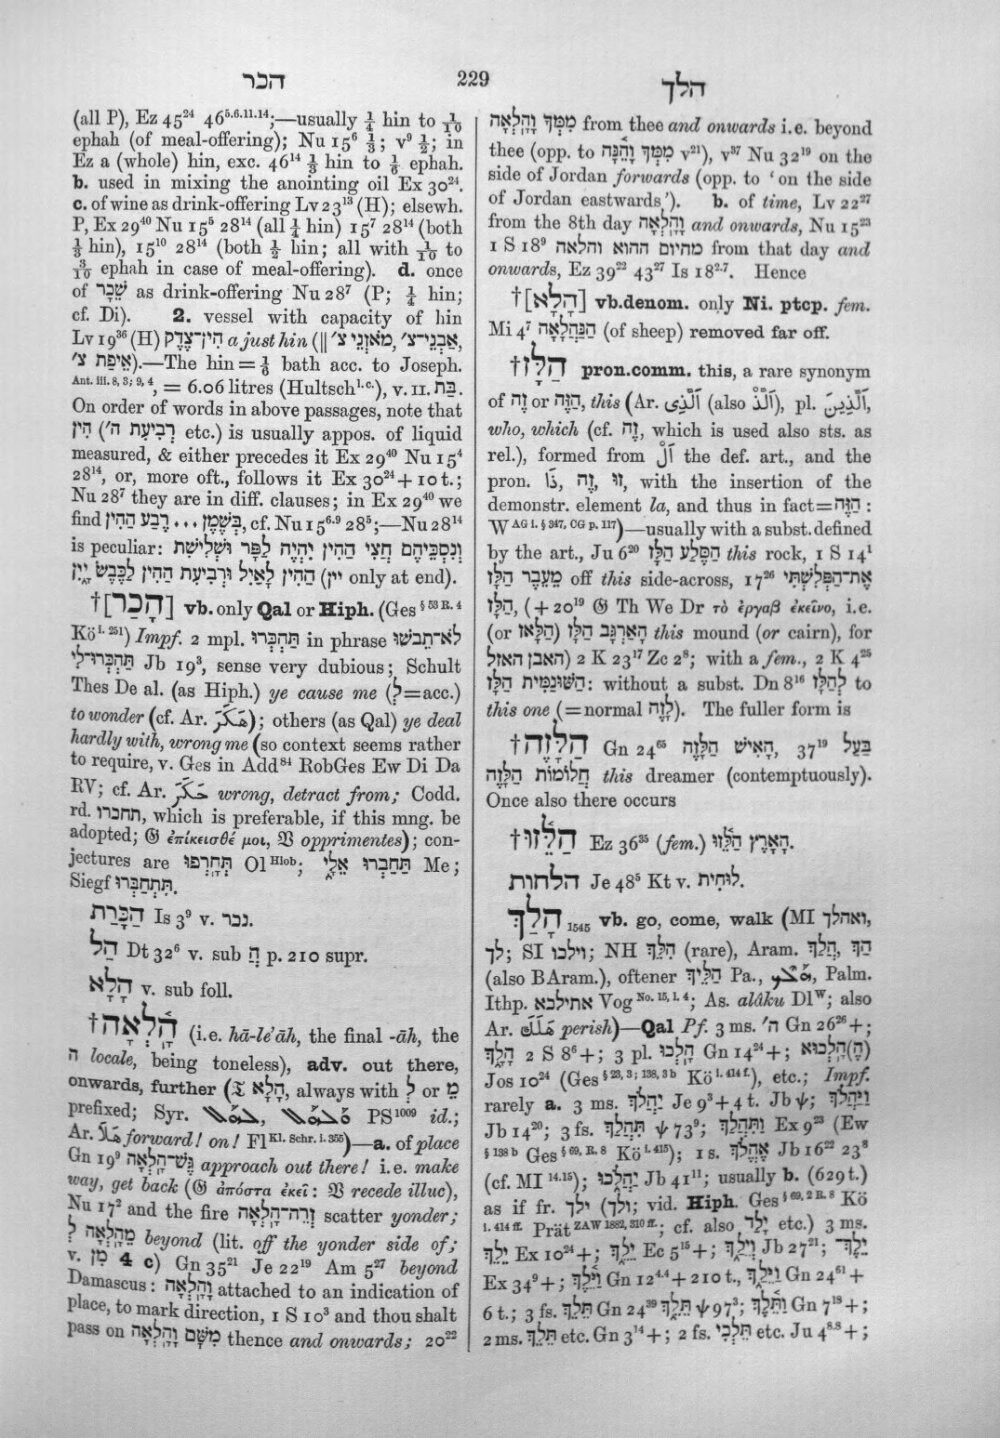 הכר
229
הלך
(all P), Ez 45²⁴ 46⁵·⁶·¹¹·¹⁴;—usually ¼ hin to ⅒
ephah (of meal-offering); Nu 15⁶ ⅓; v⁹ ½; in
Ez a (whole) hin, exc. 46¹⁴ ⅓ hin to ⅙ ephah.
b. used in mixing the anointing oil Ex 30²⁴.
c. of wine as drink-offering Lv 23¹³ (H); elsewh.
P, Ex 29⁴⁰ Nu 15⁵ 28¹⁴ (all ¼ hin) 15⁷ 28¹⁴ (both
⅓ hin), 15¹⁰ 28¹⁴ (both ½ hin; all with ⅒ to
3/10 ephah in case of meal-offering). d. once
of שֵׁכָר as drink-offering Nu 28⁷ (P; ¼ hin;
cf. Di). 2. vessel with capacity of hin
Lv 19³⁶ (H) הִין־צֶדֶק a just hin (‖ מֹאזְנֵי צ׳, אַבְנֵי־צ׳,
אֵיפַת צ׳).—The hin = ⅙ bath acc. to Joseph.
Ant. iii. 8, 3; 9, 4, = 6.06 litres (Hultsch l.c.), v. II. בַּת.
On order of words in above passages, note that
הִין (רְבִיעִת ה׳ etc.) is usually appos. of liquid
measured, & either precedes it Ex 29⁴⁰ Nu 15⁴
28¹⁴, or, more oft., follows it Ex 30²⁴ + 10 t.;
Nu 28⁷ they are in diff. clauses; in Ex 29⁴⁰ we
find בְּשֶׁמֶן ... רֶבַע הַהִין, cf. Nu 15⁶·⁹ 28⁵;—Nu 28¹⁴
is peculiar: וְנִסְכֵּיהֶם חֲצִי הַהִין יִהְיֶה לַפָּר וּשְׁלִישִׁת
הַהִין לָאַיִל וּרְבִיעִת הַהִין לַכֶּבֶשׂ יָיִן (יין only at end).
†[הָכַר] vb. only Qal or Hiph. (Ges § 53 R. 4
Kö I. 251) Impf. 2 mpl. תַּהְכְּרוּ in phrase לֹא־תֵבשׁוּ
תַּהְכְּרוּ־לִי Jb 19³, sense very dubious; Schult
Thes De al. (as Hiph.) ye cause me (לְ = acc.)
to wonder (cf. Ar. هَكَرَ); others (as Qal) ye deal
hardly with, wrong me (so context seems rather
to require, v. Ges in Add⁸⁴ RobGes Ew Di Da
RV; cf. Ar. حَكَرَ wrong, detract from; Codd.
rd. תחכרו, which is preferable, if this mng. be
adopted; 𝔊 ἐπίκεισθέ μοι, 𝔙 opprimentes); con-
jectures are תְּחָֽרְפוּ Ol Hiob; תַּחְבְּרוּ אֵלָי Me;
Siegf תִּתְחַבְּרוּ.
הַכָּרַת Is 3⁹ v. נכר.
הַל Dt 32⁶ v. sub הֲ p. 210 supr.
הָלָא v. sub foll.
†הָֽלְאָה (i.e. hā-leʾāh, the final -āh, the
ה locale, being toneless), adv. out there,
onwards, further (𝔗 הָלָא, always with לְ or מִ
prefixed; Syr. PS¹⁰⁰⁹ id.;
Ar. هَلَا forward! on! Fl Kl. Schr. i. 355)—a. of place
Gn 19⁹ גֶּשׁ־הָלְאָה approach out there! i.e. make
way, get back (𝔊 ἀπόστα ἐκεῖ: 𝔙 recede illuc),
Nu 17² and the fire זְרֵה־הָלְאָה scatter yonder;
מֵהָלְאָה לְ beyond (lit. off the yonder side of;
v. מִן 4 c) Gn 35²¹ Je 22¹⁹ Am 5²⁷ beyond
Damascus: וָהָלְאָה attached to an indication of
place, to mark direction, 1 S 10³ and thou shalt
pass on מִשָּׁם וָהָלְאָה thence and onwards; 20²²
מִמְּךָ וָהָלְאָה from thee and onwards i.e. beyond
thee (opp. to מִמְּךָ וָהֵנָּה v²¹), v³⁷ Nu 32¹⁹ on the
side of Jordan forwards (opp. to ‘on the side
of Jordan eastwards’). b. of time, Lv 22²⁷
from the 8th day וָהָלְאָה and onwards, Nu 15²³
1 S 18⁹ מהיום ההוא והלאה from that day and
onwards, Ez 39²² 43²⁷ Is 18²·⁷. Hence
†[הָלָא] vb.denom. only Ni. ptcp. fem.
Mi 4⁷ הַנַּהֲלָאָה (of sheep) removed far off.
†הַלָּז pron.comm. this, a rare synonym
of זֶה or הַזֶּה, this (Ar. اَلَّذِى (also اَلَّذْ), pl. اَلَّذِينَ,
who, which (cf. זֶה, which is used also sts. as
rel.), formed from اَلْ the def. art., and the
pron. ذَا, זֶה, זוּ, with the insertion of the
demonstr. element la, and thus in fact = הַזֶּה:
W AG i. § 347, CG p. 117)—usually with a subst. defined
by the art., Ju 6²⁰ הַסֶּלַע הַלָּז this rock, 1 S 14¹
מֵעֵבֶר הַלָּז off this side-across, 17²⁶ אֶת־הַפְּלִשְׁתִּי
הַלָּז, (+ 20¹⁹ 𝔊 Th We Dr τὸ ἐργαβ ἐκεῖνο, i.e.
הָאַרְגָּב הַלָּז (or הַלָּאז) this mound (or cairn), for
האבן האזל) 2 K 23¹⁷ Zc 2⁸; with a fem., 2 K 4²⁵
הַשּׁוּנַמִּית הַלָּז: without a subst. Dn 8¹⁶ לְהַלָּז to
this one (= normal לָזֶה). The fuller form is
†הַלָּזֶה Gn 24⁶⁵ הָאִישׁ הַלָּזֶה, 37¹⁹ בַּעַל
הַחֲלֹמוֹת הַלָּזֶה this dreamer (contemptuously).
Once also there occurs
†הַלֵּזוּ Ez 36³⁵ (fem.) הָאָרֶץ הַלֵּזוּ.
הלחות Je 48⁵ Kt v. לוּחִית.
הָלַךְ ₁₅₄₅ vb. go, come, walk (MI ואהלך,
לך; SI וילכו; NH הִלֵּךְ (rare), Aram. הֲלַךְ, הַךְ
(also BAram.), oftener הַלֵּיךְ Pa., Palm.
Ithp. אתילכא Vog No. 15, l. 4; As. alâku Dl W; also
Ar. هَلَكَ perish)—Qal Pf. 3 ms. ה׳ Gn 26²⁶ +;
הָלָךְ 2 S 8⁶ +; 3 pl. הָלְכוּ Gn 14²⁴ +; הֶ)הָלְכוּא)
Jos 10²⁴ (Ges § 23, 3; 138, 3 b Kö I. 414 f.), etc.; Impf.
rarely a. 3 ms. יַהֲלֹךְ Je 9³ + 4 t. Jb ψ; וַיַּהֲלֹךְ
Jb 14²⁰; 3 fs. תִּהֲלַךְ ψ 73⁹; וַתִּהֲלַךְ Ex 9²³ (Ew
§ 138 b Ges § 69, R. 8 Kö I. 415); 1 s. אֶהֱלֹךְ Jb 16²² 23⁸
(cf. MI 14.15); יַהֲלֹכוּ Jb 41¹¹; usually b. (629 t.)
as if fr. ילך (וּלך; vid. Hiph. Ges § 69, 2 R. 8 Kö
I. 414 ff. Prät ZAW 1882, 310 ff.; cf. also יָלַד etc.) 3 ms.
יֵלֵךְ Ex 10²⁴ +; יֵלֶךְ Ec 5¹⁵ +; וְיֵלֶךְ Jb 27²¹; יֵלֶךְ־
Ex 34⁹ +; וַיֵּלֶךְ Gn 12⁴·⁴ + 210 t., וַיֵּלַךְ Gn 24⁶¹ +
6 t.; 3 fs. תֵּלֵךְ Gn 24³⁹ תֵּלֶךְ ψ 97³; וַתֵּלֶךְ Gn 7¹⁸ +;
2 ms. תֵּלֵךְ etc. Gn 3¹⁴ +; 2 fs. תֵּלְכִי etc. Ju 4⁸·⁸ +;